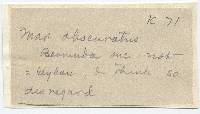 K 71
Mar obscuratus
Bermuda inc. not
= Leyban I think so
disregard